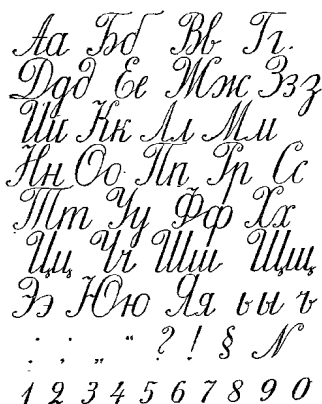 Аа Бб Вв Гг.
Дд д Ее Жж Зз з
Ии Кк Лл Мм
Нн Оо Пп Рр Сс
Тт Уу Фф Хх
Цц Чч Шш Щщ
Ээ Юю Яя ь ы ъ
: ; „ “ ? ! § N
1 2 3 4 5 6 7 8 9 0